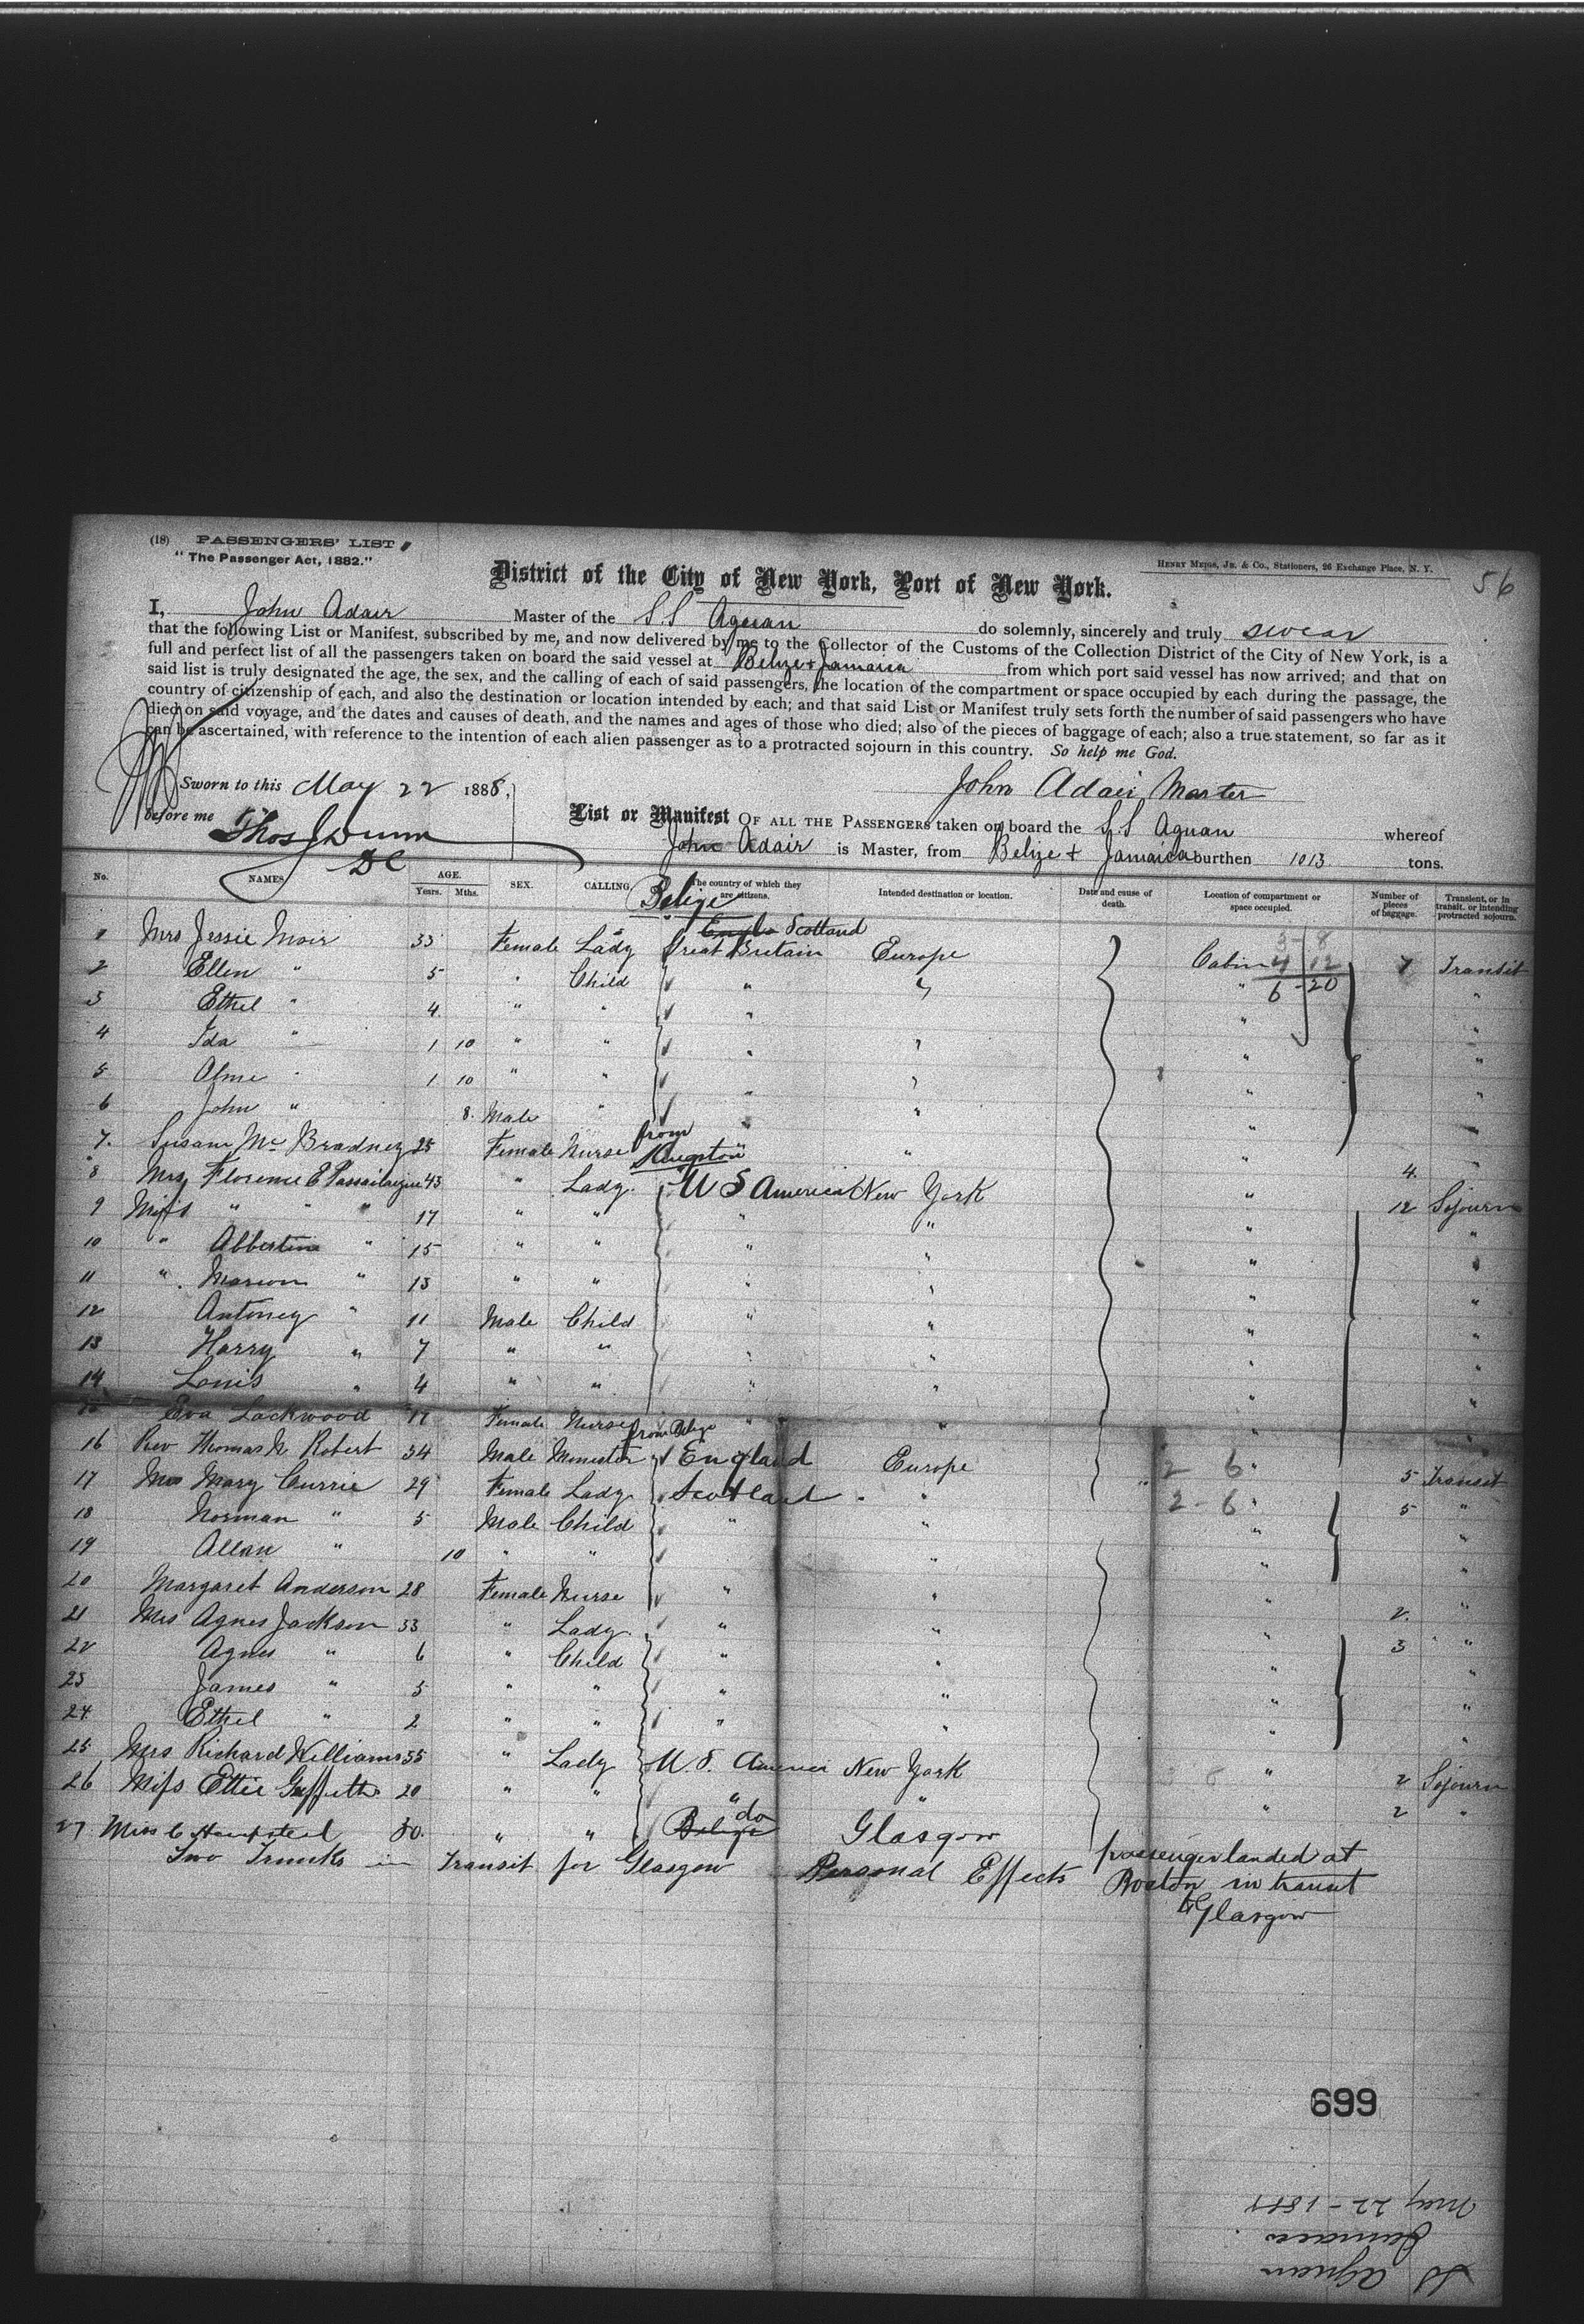 (18) PASSENGERS' LIST
"The Passenger Act, 1882."
HENRY MEIGS, JR. & CO., Stationers, 26 Exchange Place, N. Y.
56
District of the City of New York, Port of New York.
I, John Adair Master of the S.S Aguan do solemnly, sincerely and truly swear
that the following List or Manifest, subscribed by me, and now delivered by me to the Collector of the Customs of the Collection District of the City of New York, is a
full and perfect list of all the passengers taken on board the said vessel at Belize + Jamaica from which port said vessel has now arrived; and that on
said list is truly designated the age, the sex, and the calling of each of said passengers, the location of the compartment or space occupied by each during the passage, the
country of citizenship of each, and also the destination or location intended by each; and that said List or Manifest truly sets forth the number of said passengers who have
died on said voyage, and the dates and causes of death, and the names and ages of those who died; also of the pieces of baggage of each; also a true statement, so far as it
can be ascertained, with reference to the intention of each alien passenger as to a protracted sojourn in this country. So help me God.
Sworn to this May 22 1888,
John Adair Master
before me Thos J Dunn
DC
List or Manifest OF ALL THE PASSENGERS taken on board the S.S Aguan whereof
John Adair is Master, from Belize + Jamaica burthen 1013 tons.
No. NAMES AGE. Years. Mths. SEX. CALLING. The country of which they are citizens. Intended destination or location. Date and cause of death. Location of compartment or space occupied. Number of pieces of baggage. Transient, or in transit, or intending protracted sojourn.
Belize
Scotland
1 Mrs Jessie Moir 33 Female Lady Great Britain Europe Cabin 7 Transit
2 Ellen " 5 " Child " " "
6 - 20
3 Ethel " 4 " " " " "
4 Ida " 1 10 " " " " " "
5 " 1 10 " " " " " "
6 John " 8 Male " " " " "
from
7. Susan Mc Bradney 25 Female Nurse " " " 4. "
Kingston
8 Mrs Florence E 43 " Lady U S America New York " 12 Sojourn
9 Miss " " " 17 " " " " " "
10 " Albertine " 15 " " " " " "
11 " Marion " 13 " " " " " "
12 Antoney " 11 Male Child " " " "
13 Harry " 7 " " " " " "
14 Louis " 4 " " " " " "
Eva Lockwood 17 Female Nurse " " " "
from Belize
16 Rev Thomas N. Robert 34 Male Minister England Europe 2 6 " 5 Transit
17 Mrs Mary Currie 29 Female Lady Scotland " 2 - 6 " 5 "
18 Norman " 5 Male Child " " " "
19 Allan " 10 " " " " "
20 Margaret Anderson 28 Female Nurse " " " 2. "
21 Mrs Agnes Jackson 33 " Lady " " " 3 "
22 Agnes " 6 " Child " " " "
23 James " 5 " " " " " "
24 Ethel " 2 " " " " " "
25 Mrs Richard Williams 35 " Lady U. S. New York " 2 Sojourn
26 Miss Ettie 20 " " " " " 2 "
do
27 Miss C 30. " " Belize Glasgow
Two Trunks in Transit for Glasgow Personal Effects
passenger landed at
Boston in transit
to Glasgow
699
SS Aguan
Jamaica
May 22 - 1888